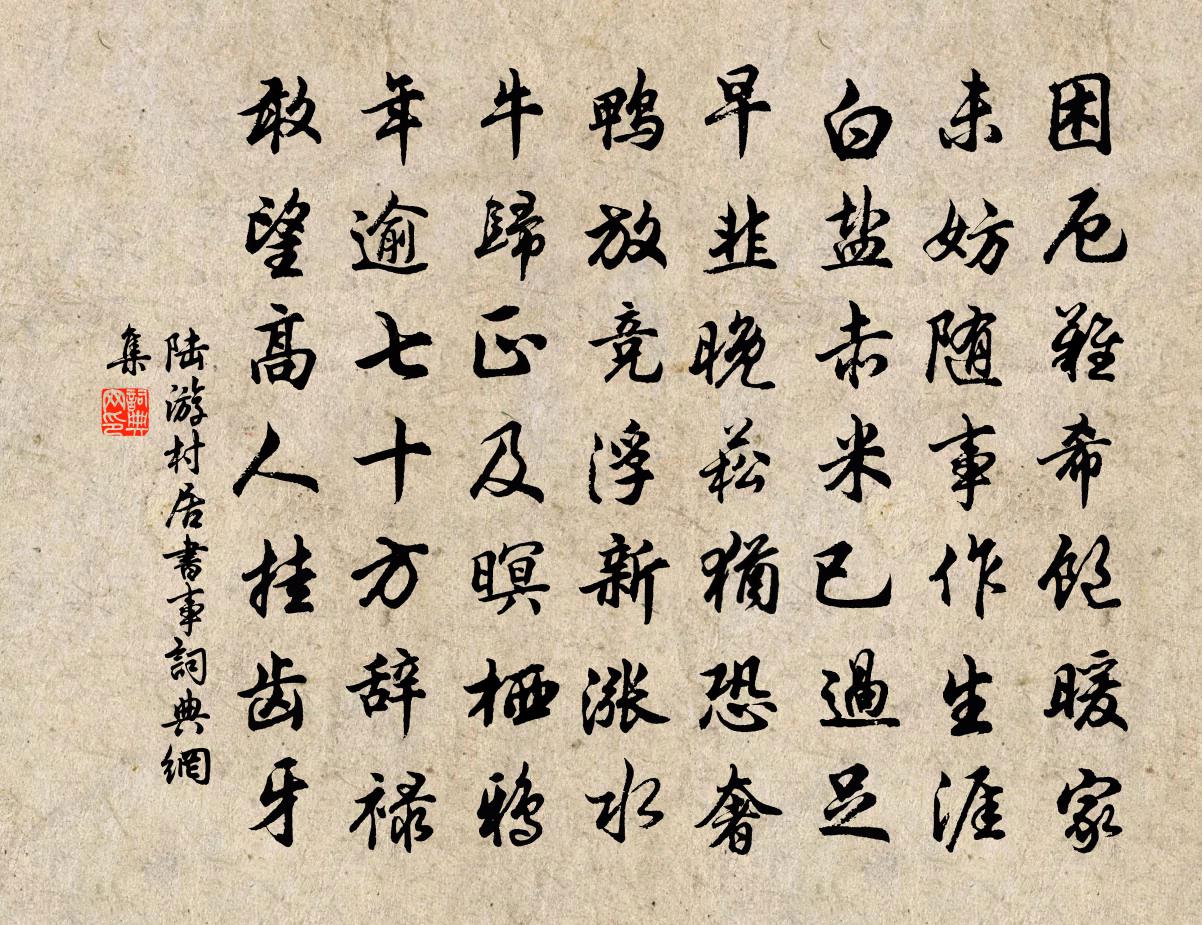 困厄難希飽暖家
未妨随事作生涯
白盐赤米已過足
早韭晚菘猶恐奢
鴨放竞浮新漲水
牛歸正及暝栖鸦
年逾七十方辞禄
敢望高人挂齿牙
陆游村居書事詞典網
集
詞典
网印